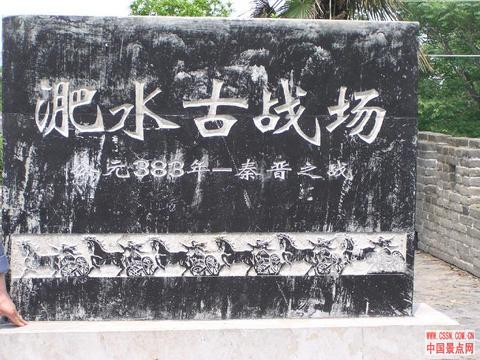 淝水古战场
公元383年—秦晋之战
WWW.CSSN.COM.CN
中国景点网